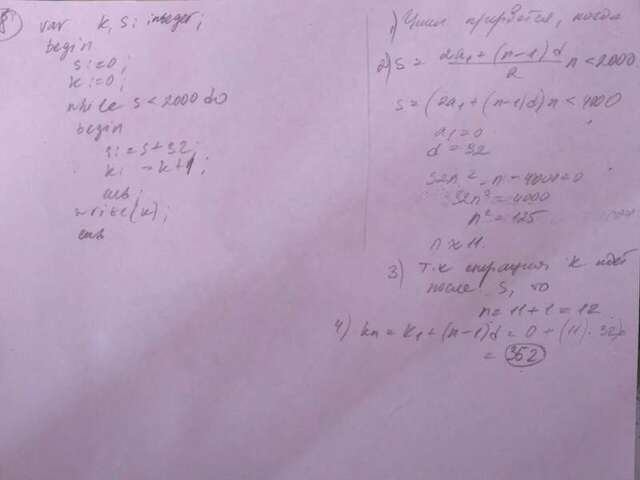 8)
var k, s: integer;
begin
s:=0;
k:=0;
while s < 2000 do
begin
s:= s + 32;
k:= k+1;
end;
write(k);
end
1) Цикл прервется, когда
2) S = (2a₁ + (n-1)d)/2 n < 2000
S = (2a₁ + (n-1)d)n < 4000
a₁=0
d = 32
32n² - n - 4000=0
32n² = 4000
n² = 125
n ≈ 11
3) т.к операция k идет
после S, то
n = 11+1 = 12
4) kn = k₁ + (n-1)d = 0 + (11)·32)=
= 352